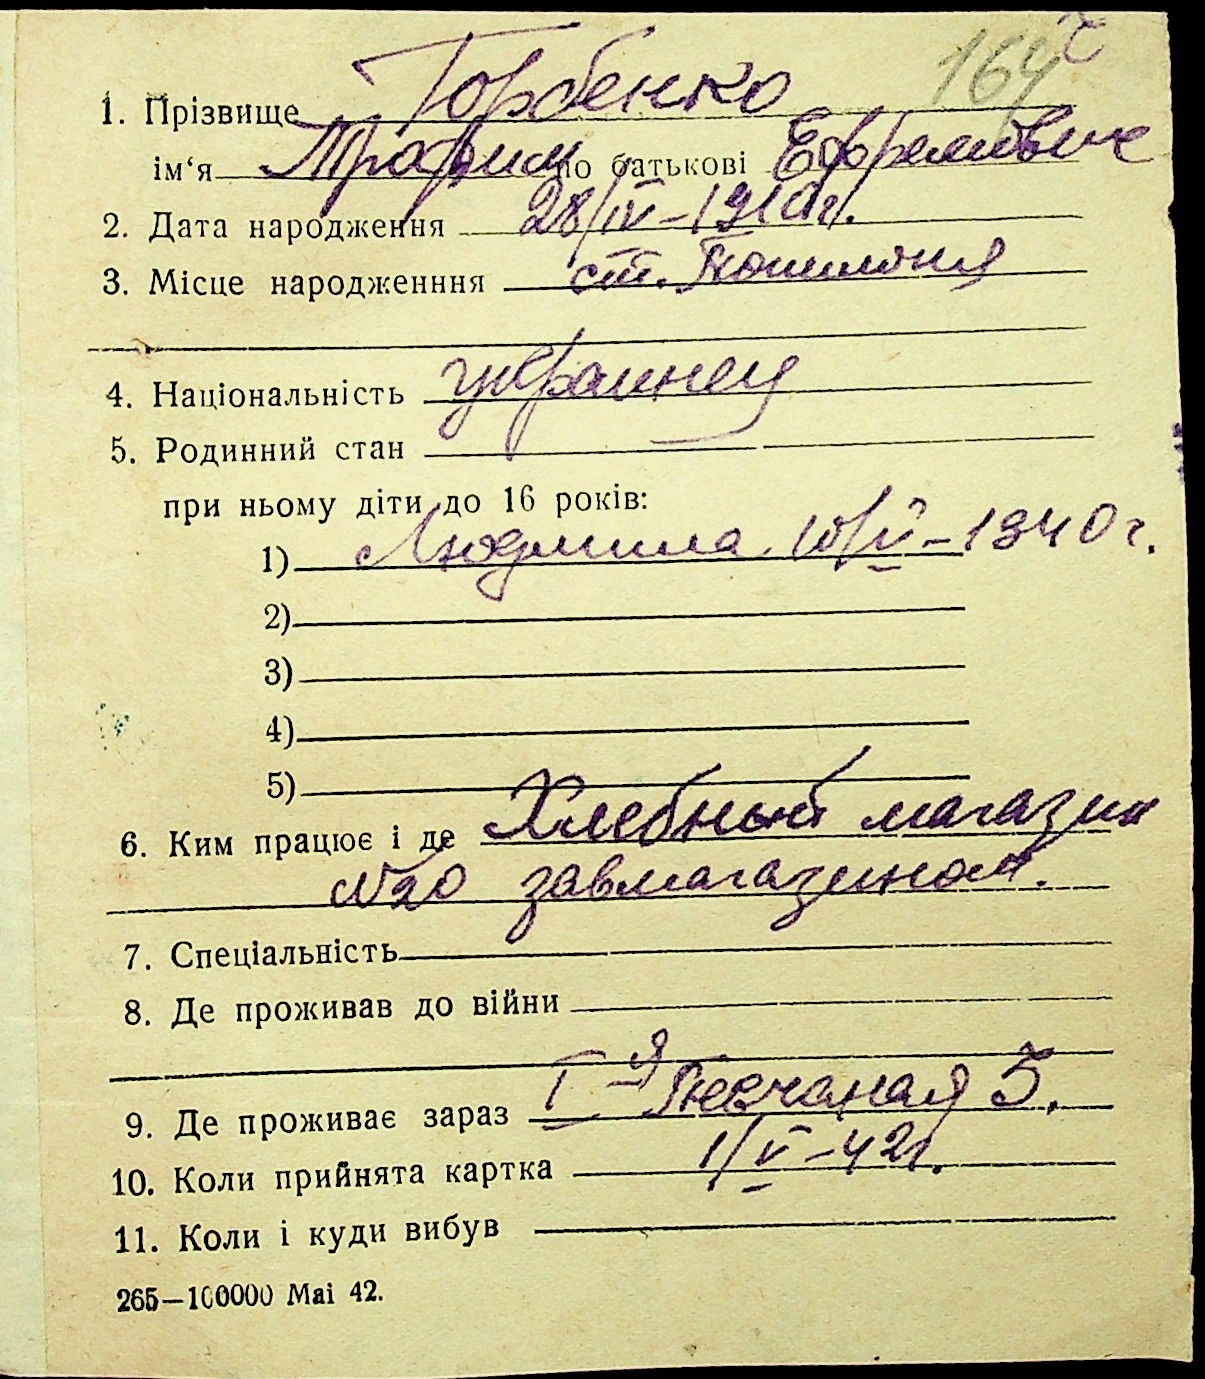 164
1. Прізвище Горбенко
ім‘я Трофим по батькові Ефремович
2. Дата народження 28/IV–1910 г.
3. Місце народженння ст.
4. Національність украинец
5. Родинний стан
при ньому діти до 16 років:
1) Людмила 10/V–1940 г.
2)
3)
4)
5)
6. Ким працює і де Хлебный магазин
№20 завмагазином.
7. Спеціальність
8. Де проживав до війни
9. Де проживає зараз I–я Песчаная 5.
10. Коли прийнята картка 1/V–42 г.
11. Коли і куди вибув
265—100000 Маі 42.